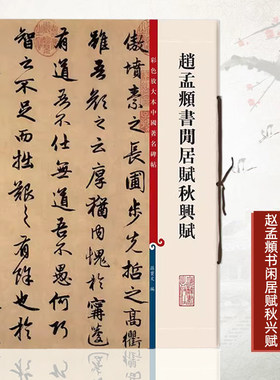 趙孟頫書閒居賦秋興賦
彩色放大本中國著名碑帖
孫寶文 編
傲墳素之長圃步先哲之高衢
雖吾顏之云厚猶內愧於甯蘧
有道吾不仕無道吾不愚何巧
智之不足而拙艱之有餘也於
赵孟頫书闲居赋秋兴赋